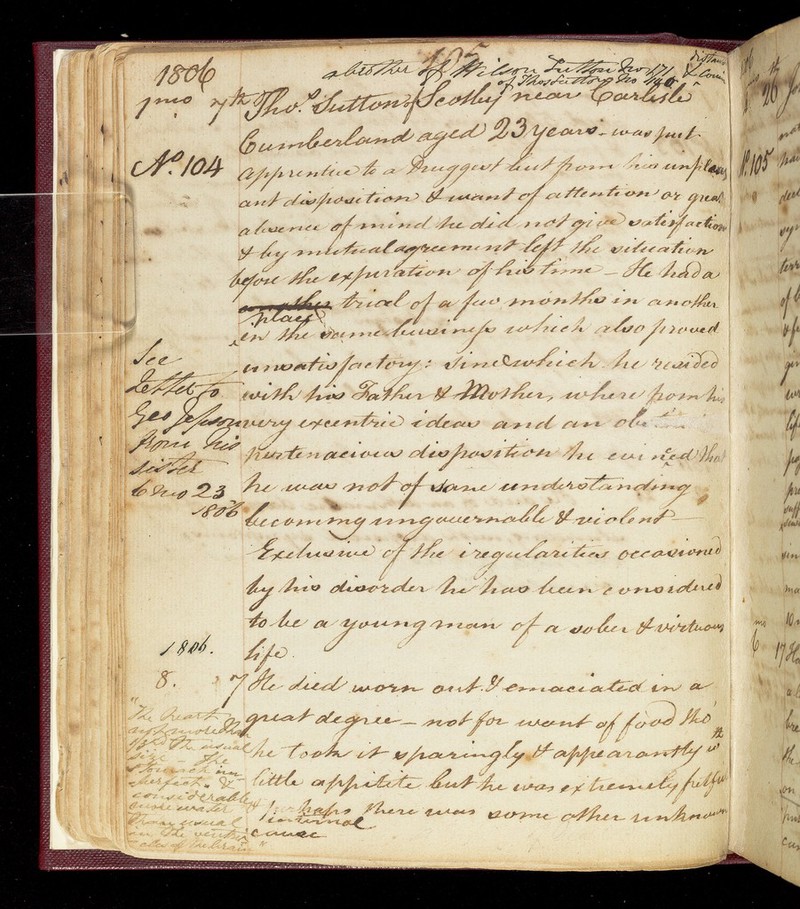 105
1806
a brother of Wilson Sutton No 171 &
of Thos Sutton No
1 mo 7th Thos. Sutton of Scotby near Carlisle
Cumberland aged 23 years - was put
No. 104
apprentice to a Druggist but from his unpleas
ant disposition & want of attention or great
absence of mind he did not give satisfaction
& by mutual agreement left the situation
before the expiration of his time - He had a
another trial of a few months in another
place
in the same business which also proved
unsatisfactory: since which he resided
with his Father & Mother, where from his
very excentric ideas and an
pertenacious disposition he evinced that
he was not of sane understanding
becoming ungovernable & violent -
See
Letter to
Geo Jepson
from his
sister
6 mo 23
1806
Exclusive of the iregularities occasioned
by his disorder he has been considered
to be a young man of a sober & virtuous
life.
1806.
8. 7 He died worn out & emaciated in a
great degree - not for want of food tho'
he took it sparingly & appearantly wth
little appitite but he was extremely fretful
& perhaps there was some other unknown
internal
cause
"The Heart
not more than
1/3rd the usual
size - the
stomach im-
perfect. &
considerable
more water
than usual
in the ventri
cles of the brain"
26
No. 105
6 17